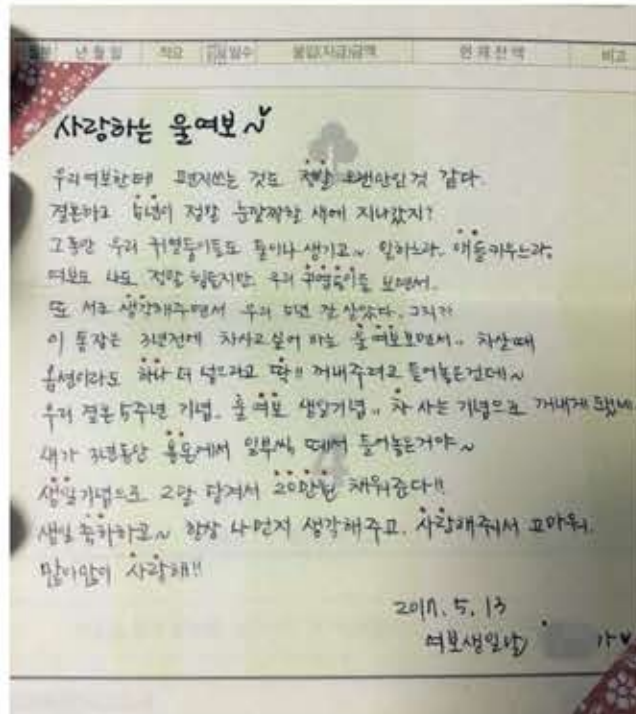 년월일 적요 불입(지급)금액 현재잔액 비고
사랑하는 울여보
우리여보한테 편지쓰는 것도 정말 오랜만인것 같다.
결혼하고 5년이 정말 눈깜짝할 새에 지나갔지?
그동안 우리 귀염둥이들도 둘이나 생기고~ 일하느라, 애들키우느라,
여보도 나도 정말 힘들지만 우리 귀염둥이들 보면서,
또 서로 생각해주면서 우리 5년 잘 살았다. 그치?
이 통장은 3년전에 차사고싶어 하는 울여보보면서.. 차살때
옵션이라도 하나 더 넣으라고 딱!! 꺼내주려고 들어놓은건데~
우리 결혼5주년 기념. 울여보 생일기념.. 차 사는 기념으로 꺼내게 됐네
내가 3년동안 용돈에서 일부씩 떼서 들어놓은거야~
생일기념으로 2달 당겨서 20만원 채워준다!!
생일 축하하고~ 항상 나먼저 생각해주고, 사랑해줘서 고마워.
많이많이 사랑해!!
2017. 5. 13
여보생일날 가♥